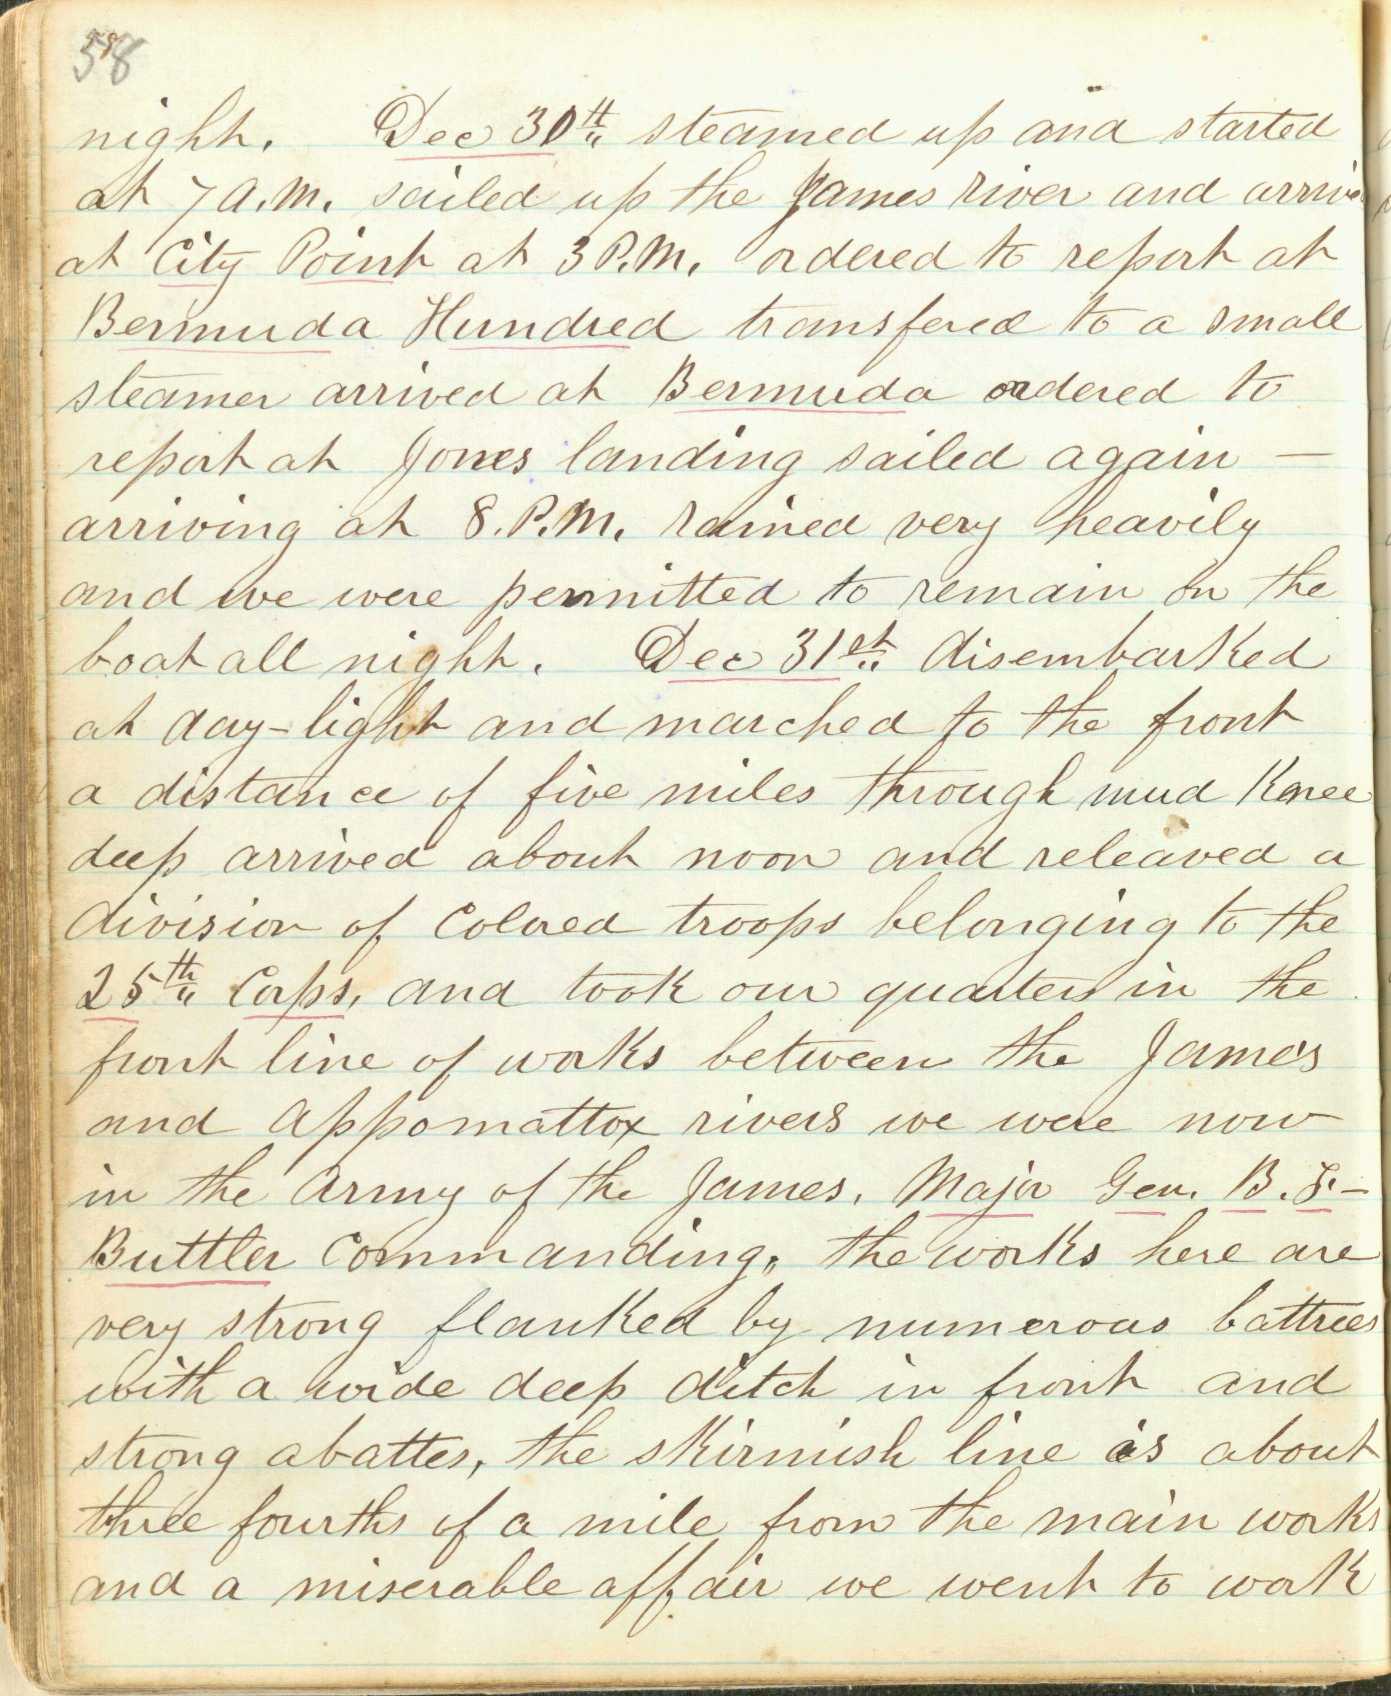 58
night. Dec 30th steamed up and started
at 7 A.M. sailed up the James river and arrive
at City Point at 3 P.M. ordered to report at
Bermuda Hundred transfered to a small
steamer arrived at Bermuda ordered to
report at Jones landing sailed again —
arriving at 8. P.M. rained very heavily
and we were permitted to remain on the
boat all night. Dec 31st disembarked
at day-light and marched to the front
a distance of five miles through mud Knee
deep arrived about noon and releaved a
division of Colored troops belonging to the
25th Corps, and took our quarters in the
front line of works between the James
and Appomattox rivers we were now
in the Army of the James. Major Gen. B. F. -
Buttler Commanding. the works here are
very strong flanked by numerous battrees
with a wide deep ditch in front and
strong abattes, the skirmish line is about
three fourths of a mile from the main works
and a miserable affair we went to work